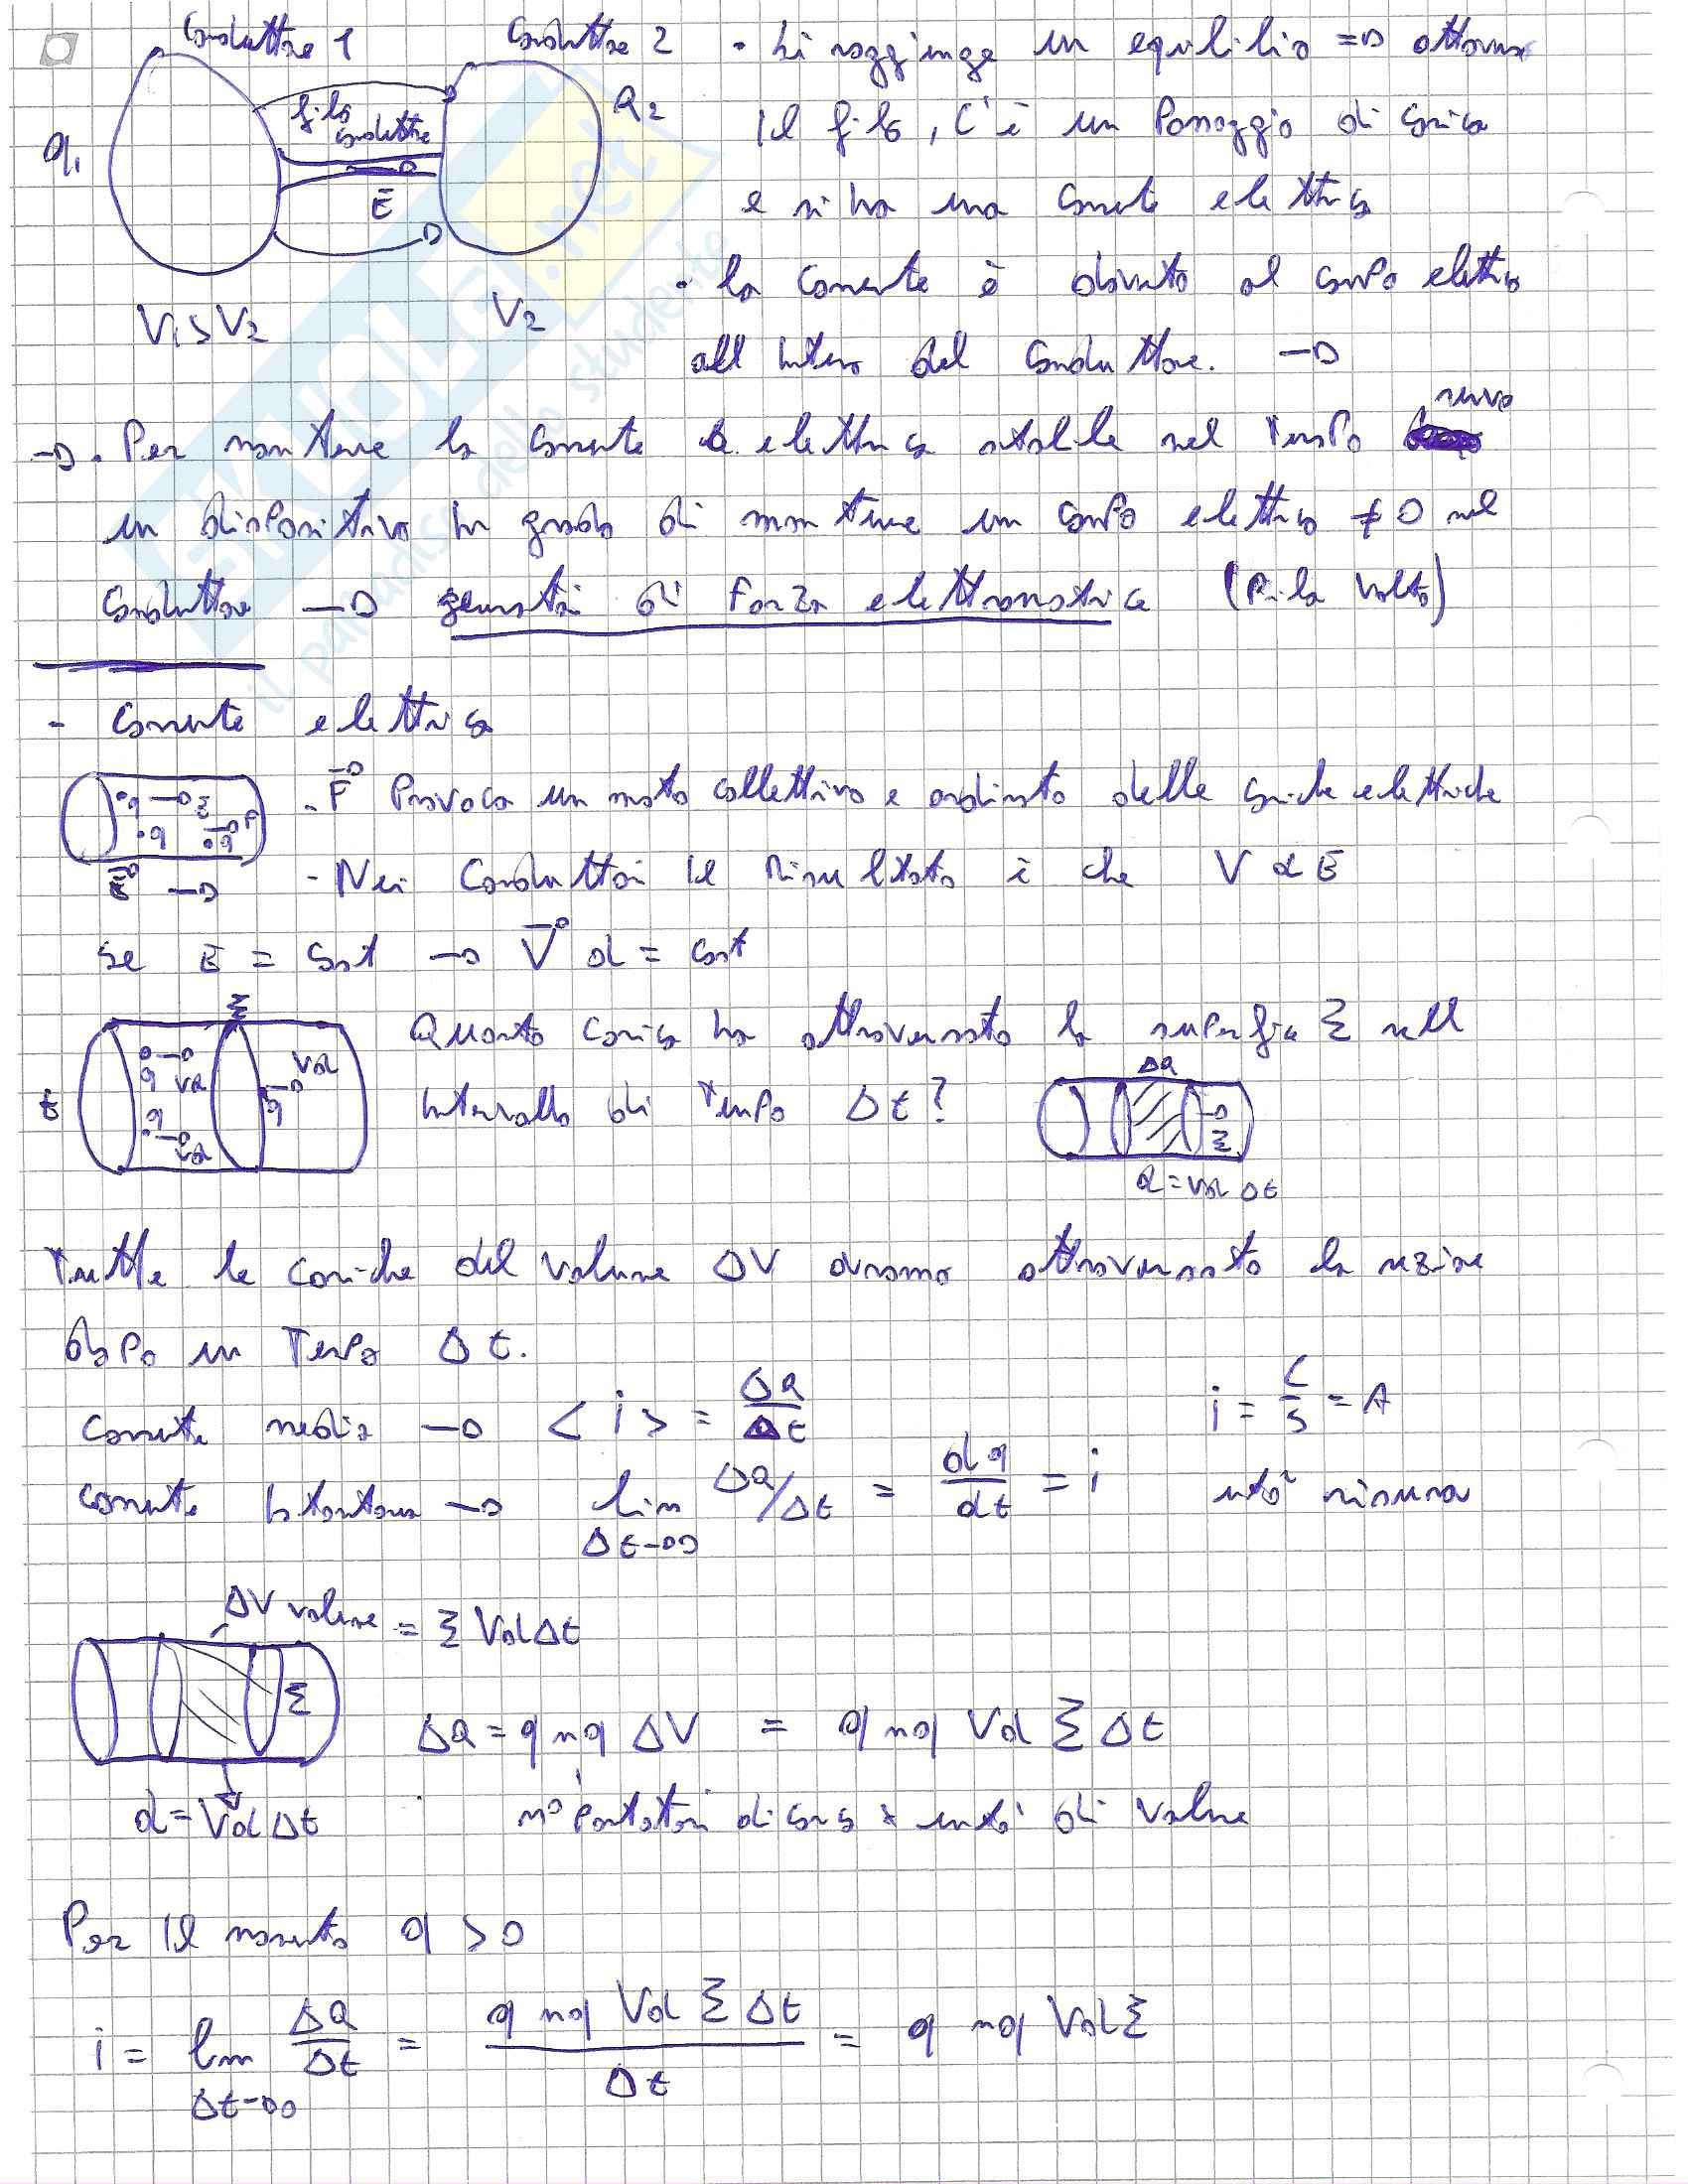 Conduttore 1 Conduttore 2 • Si raggiunge un equilibrio => attraverso
q1 filo conduttore Q2 il filo, c'è un passaggio di carica
E e si ha una corrente elettrica
V1 > V2 V2 • la corrente è dovuta al campo elettrico
all'interno del conduttore. →
→ • Per mantenere la corrente elettrica stabile nel tempo serve
un dispositivo in grado di mantenere un campo elettrico ≠ 0 nel
conduttore → generatori di forza elettromotrice (Pila Volta)
- Corrente elettrica
q → E q q F - F Provoca un moto collettivo e ordinato delle cariche elettriche
E → - Nei conduttori il risultato è che V ∝ E
se E = cost → V d = cost
Σ Quanta carica ha attraversato la superficie Σ nell
E q Vd q Vd q Vd intervallo di tempo Δt? ΔQ Σ
d = Vd Δt
Tutte le cariche del volume ΔV avranno attraversato la sezione
dopo un tempo Δt.
Corrente media → < i > = ΔQ/Δt i = C/S = A
Corrente istantanea → lim Δt→0 ΔQ/Δt = dq/dt = i unità misura
ΔV volume = Σ Vd Δt
Σ
ΔQ = q nq ΔV = q nq Vd Σ Δt
d = Vd Δt n° portatori di carica x unità di volume
Per il momento q > 0
i = lim Δt→0 ΔQ/Δt = q nq Vd Σ Δt / Δt = q nq Vd Σ
SKUOLA.net
il paradiso dello studente